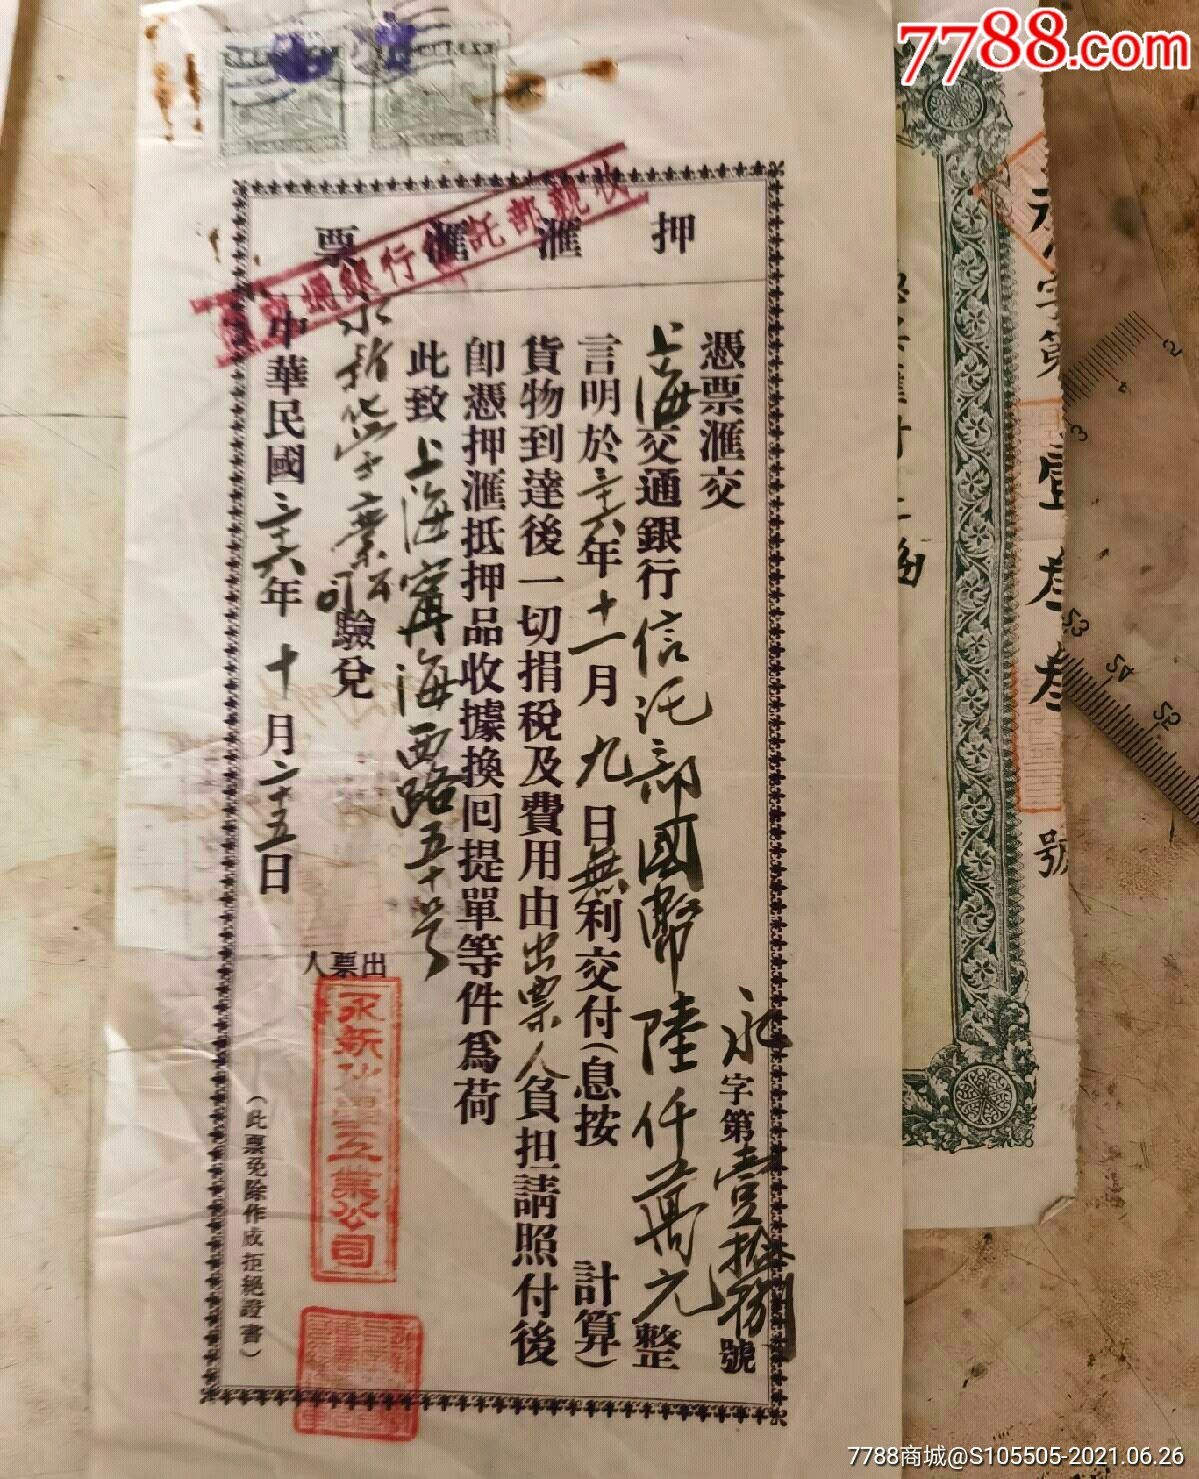 7788.com
押滙滙票
永字第壹拾捌號
憑票滙交
上海交通銀行信託部國幣陸仟萬元整
言明於三十六年十一月九日無利交付(息按 計算)
貨物到達後一切捐稅及費用由出票人負担請照付後
卽憑押滙抵押品收據換囘提單等件爲荷
此致上海寧海西路五十號
永新化学工業公司驗兌
中華民國三十六年十月二十五日
出票人
永新化學工業公司
(此票免除作成拒絕證書)
字第壹
號
7788商城@S105505-2021.06.26